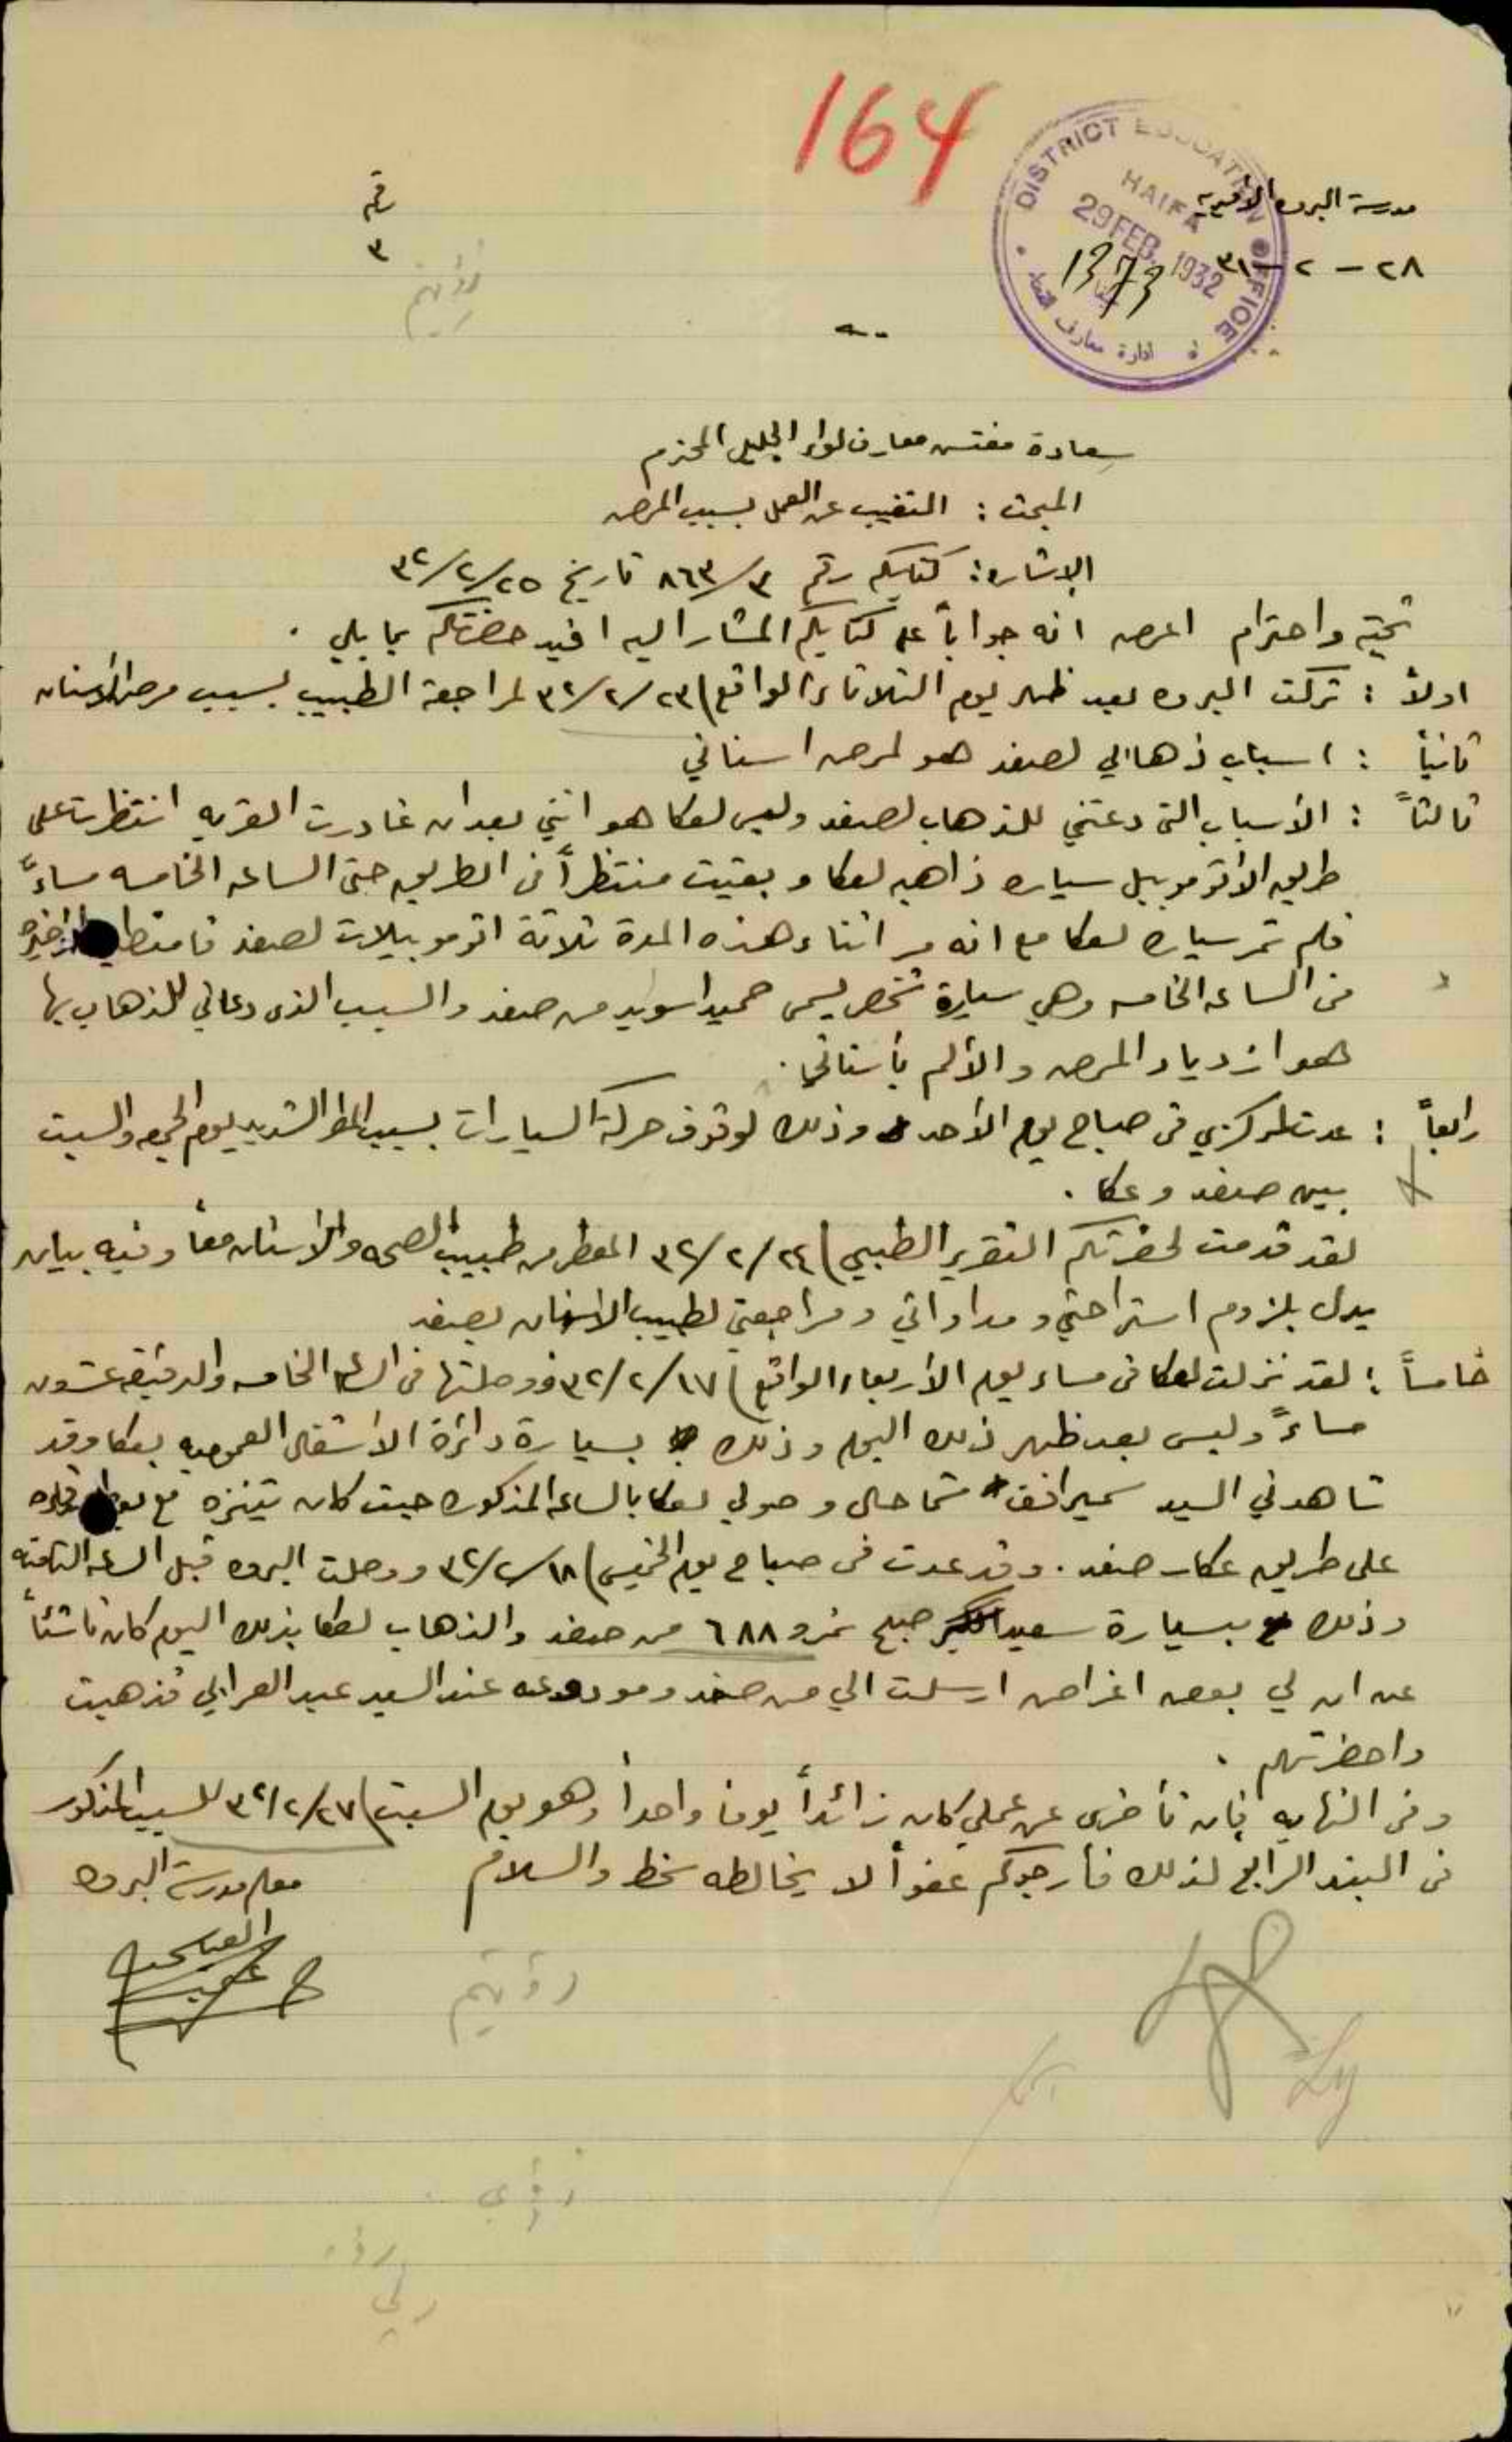 164
DISTRICT EDUCATION OFFICE
HAIFA
29 FEB. 1932
1373
ادارة معارف
مدرسة البروه الأميرية
٢٨ - ٢ - ٣٢
رقم
٣
سعادة مفتش معارف لواء الجليل المحترم
المبحث : التغيب عن العمل بسبب المرض
الاشارة : كتابكم رقم ٨٦٣/٣ تاريخ ٣٢/٢/٢٥
تحية واحترام اعرض انه جواباً على كتابكم المشار اليه افيد حضرتكم بما يلي .
اولاً : تركت البروه بعد ظهر يوم الثلاثاء الواقع) ٣٢/٢/٢٣ لمراجعة الطبيب بسبب مرض الأسنان
ثانياً : اسباب ذهابي لصفد هو لمرض اسناني
ثالثاً : الأسباب التى دعتني للذهاب لصفد وليس لعكا هو انني بعد ان غادرت القريه انتظرت على
طريق الأتوموبيل سياره ذاهبه لعكا وبقيت منتظراً فى الطريق حتى الساعه الخامسه مساءً
فلم تمر سياره لعكا مع انه مر اثناء هذه المدة ثلاثة اتوموبيلات لصفد الأخيره
فى الساعه الخامسه وهي سيارة شخص يسمى حميد اسويد من صفد والسبب الذى دعاني للذهاب بها
هو ازدياد المرض والألم بأسناني .
رابعاً : عدت لمركزي فى صباح يوم الأحد وذلك لوقوف حركة السيارات بسبب المطر الشديد يوم الجمعه والسبت
بين صفد وعكا .
لقد قدمت لحضرتكم التقرير الطبي) ٣٢/٢/٢٤ المعطى من طبيب الصحه والأسنان معاً وفيه بيان
يدل بلزوم استراحتي ومداواتي ومراجعتي لطبيب الاسنان بصفد
خامساً : لقد نزلت لعكا فى مساء يوم الأربعاء الواقع) ٣٢/٢/١٧ فوصلتها فى الساعه الخامسه والدقيقه عشرون
مساءً وليس بعد ظهر ذلك اليوم وذلك بسيارة دائرة الاشغال العموميه بعكا وقد
شاهدني السيد سمير افندي شما حال وصولي لعكا بالساعه المذكوره حيث كان يتنزه مع
على طريق عكا - صفد . وقد عدت فى صباح يوم الخميس) ٣٢/٢/١٨ ووصلت البروه قبل الساعه الثامنه
وذلك بسيارة سعيد صبح نمرو ٦٨٨ من صفد والذهاب لعكا بذلك اليوم كان ناشئاً
عن ان لي بعض اغراض ارسلت الي من صفد ومودوعه عند السيد عبد العرابي فذهبت
واحضرتهم .
وفى النهايه فإن تأخرى عن عملي كان زائداً يوماً واحداً وهو يوم السبت) ٣٢/٢/٢٧ للسبب المذكور
فى البند الرابع لذلك فأرجوكم عفواً لا يخالطه سخط والسلام
معلم مدرسة البروه